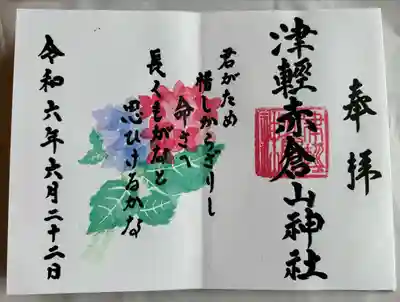 奉拝
津軽赤倉山神社
君がため
惜しからざりし
命さへ
長くもがなと
思ひけるかな
令和六年六月二十二日